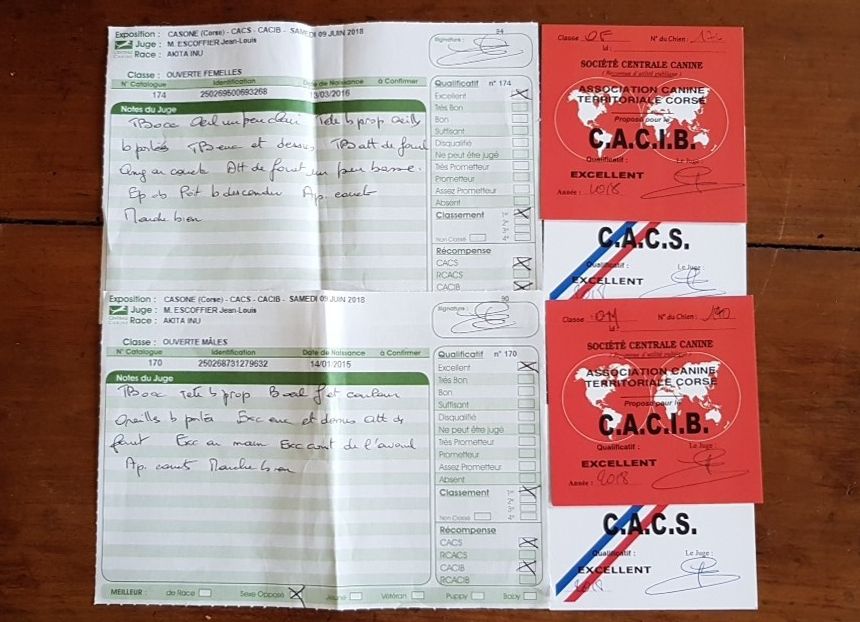 Exposition : CASONE (Corse) - CACS - CACIB - SAMEDI 09 JUIN 2018
94
Juge : M. ESCOFFIER Jean-Louis
Signature :
Race : AKITA INU
Classe : OUVERTE FEMELLES
N° Catalogue Identification Date de Naissance à Confirmer
174 250269500693268 13/03/2016
Notes du Juge
Tête b prop
b portées TB enc et dessus TB att de fouet
Ang en court Att de fouet un peu basse.
Ep b Poit b descendu Ap. court
Marche bien
Qualificatif n° 174
Excellent
Très Bon
Bon
Suffisant
Disqualifié
Ne peut être jugé
Très Prometteur
Prometteur
Assez Prometteur
Absent
Classement 1er
2e
3e
Non Classé 4e
Récompense
CACS
RCACS
CACIB
Classe OF N° du Chien : 174
SOCIÉTÉ CENTRALE CANINE
(Reconnue d'utilité publique)
ASSOCIATION CANINE
TERRITORIALE CORSE
Proposé pour le
C.A.C.I.B.
Qualificatif : Le Juge :
EXCELLENT
Année : 2018
C.A.C.S.
Qualificatif : Le Juge :
EXCELLENT
2018
Exposition : CASONE (Corse) - CACS - CACIB - SAMEDI 09 JUIN 2018
90
Juge : M. ESCOFFIER Jean-Louis
Signature :
Race : AKITA INU
Classe : OUVERTE MÂLES
N° Catalogue Identification Date de Naissance à Confirmer
170 250268731279632 14/01/2015
Notes du Juge
Tete b prop B œil f et couleur
Oreilles b portées Exc enc et dessus att de
fouet Exc en main Exc cont de l'avant
Ap. courts Marche bien
Qualificatif n° 170
Excellent
Très Bon
Bon
Suffisant
Disqualifié
Ne peut être jugé
Très Prometteur
Prometteur
Assez Prometteur
Absent
Classement 1er
2e
3e
Non Classé 4e
Récompense
CACS
RCACS
CACIB
RCACIB
MEILLEUR : de Race Sexe Opposé Jeune Vétéran Puppy Baby
Classe OM N° du Chien : 170
SOCIÉTÉ CENTRALE CANINE
(Reconnue d'utilité publique)
ASSOCIATION CANINE
TERRITORIALE CORSE
Proposé pour le
C.A.C.I.B.
Qualificatif : Le Juge :
EXCELLENT
Année : 2018
C.A.C.S.
Qualificatif : Le Juge :
EXCELLENT
2018